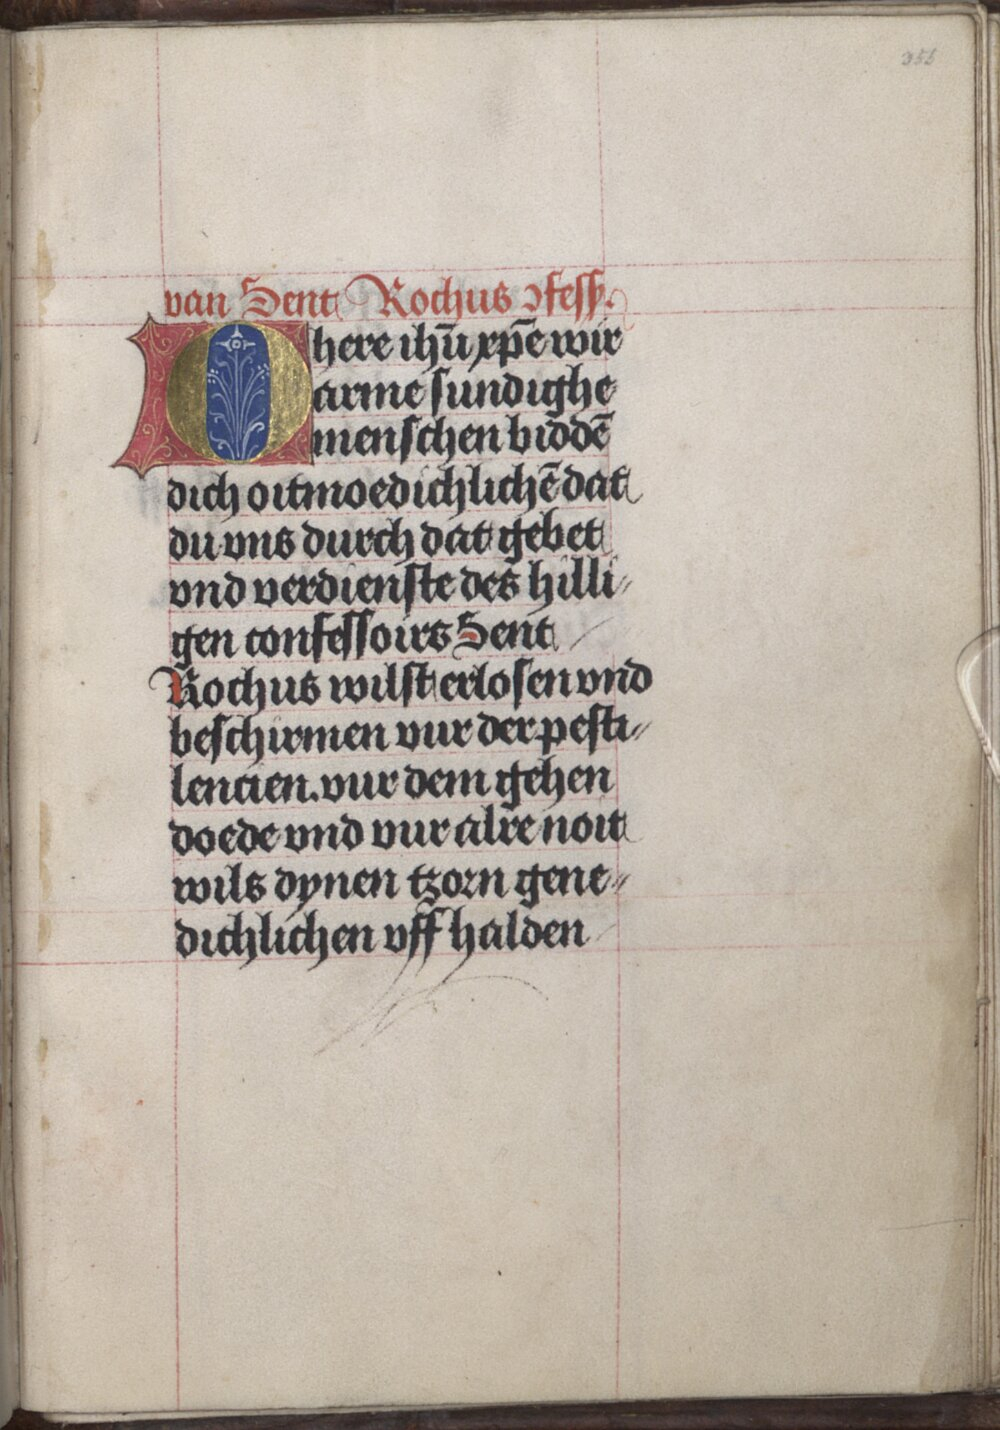 355
van Sent Rochus ɔfess̄.
O here ihū xp̄e wir
arme sundighe
menschen biddē
dich oitmoedichlichē dat
du vns durch dat gebet
vnd verdienste des hilli⸗
gen confessoirs Sent
Rochus wilst erlosen vnd
beschirmen vur der pesti⸗
lencien. vur dem gehen
doede vnd vur alre noit
wils dynen tzorn gene⸗
dichlichen vff halden